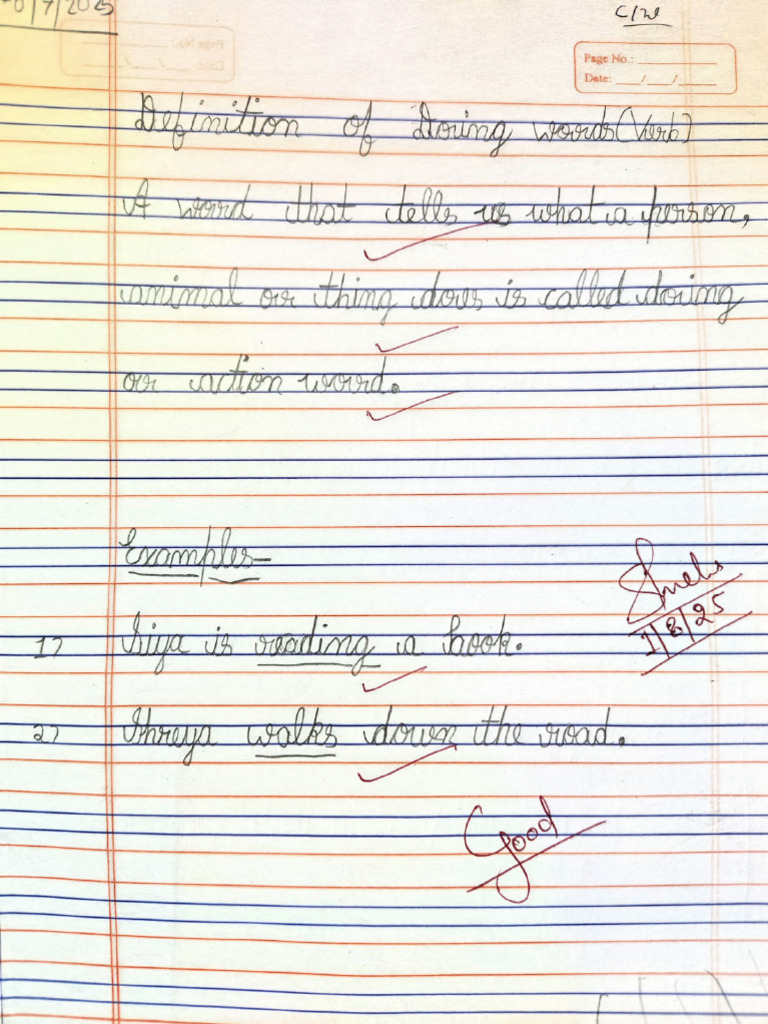 /7/2025
C/W
Page No.:
Date: __/__/__
Definition of Doing words (Verb)
A word that tells us what a person,
animal or thing does is called doing
or action word.
Examples-
1> Siya is reading a book.
1/8/25
2> Shreya walks down the road.
Good